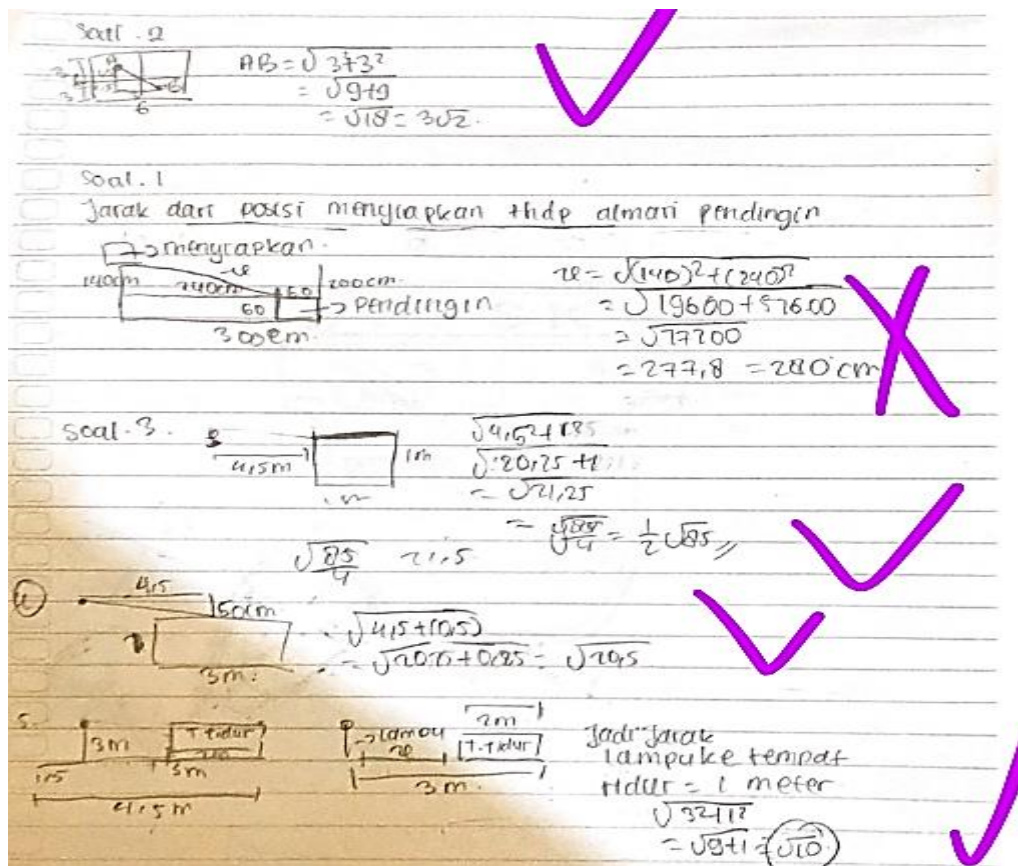 Soal . 2
3
3
6
AB = √3²+3²
= √9+9
= √18 = 3√2.
Soal . 1
Jarak dari posisi menyiapkan thdp almari pendingin
→ menyiapkan.
140cm
240cm
60
200cm
60
→ Pendingin
300cm.
x = √(140)²+(240)²
= √19600+57600
= √77200
= 277,8 = 280 cm
Soal . 3 .
4,5m
1m
1m
= √21,25
= √85/4 = 1/2 √85 //
√85/4 21,5
4,5
50cm
3m.
√4,5+(0,5)
= √20,5
5.
3m
T.tidur
1,5
3m
4,5m
→ Lampu
x
2m
T.tidur
3m.
Jadi Jarak
lampu ke tempat
tidur = 1 meter
√3²+1²
= √9+1 = √10